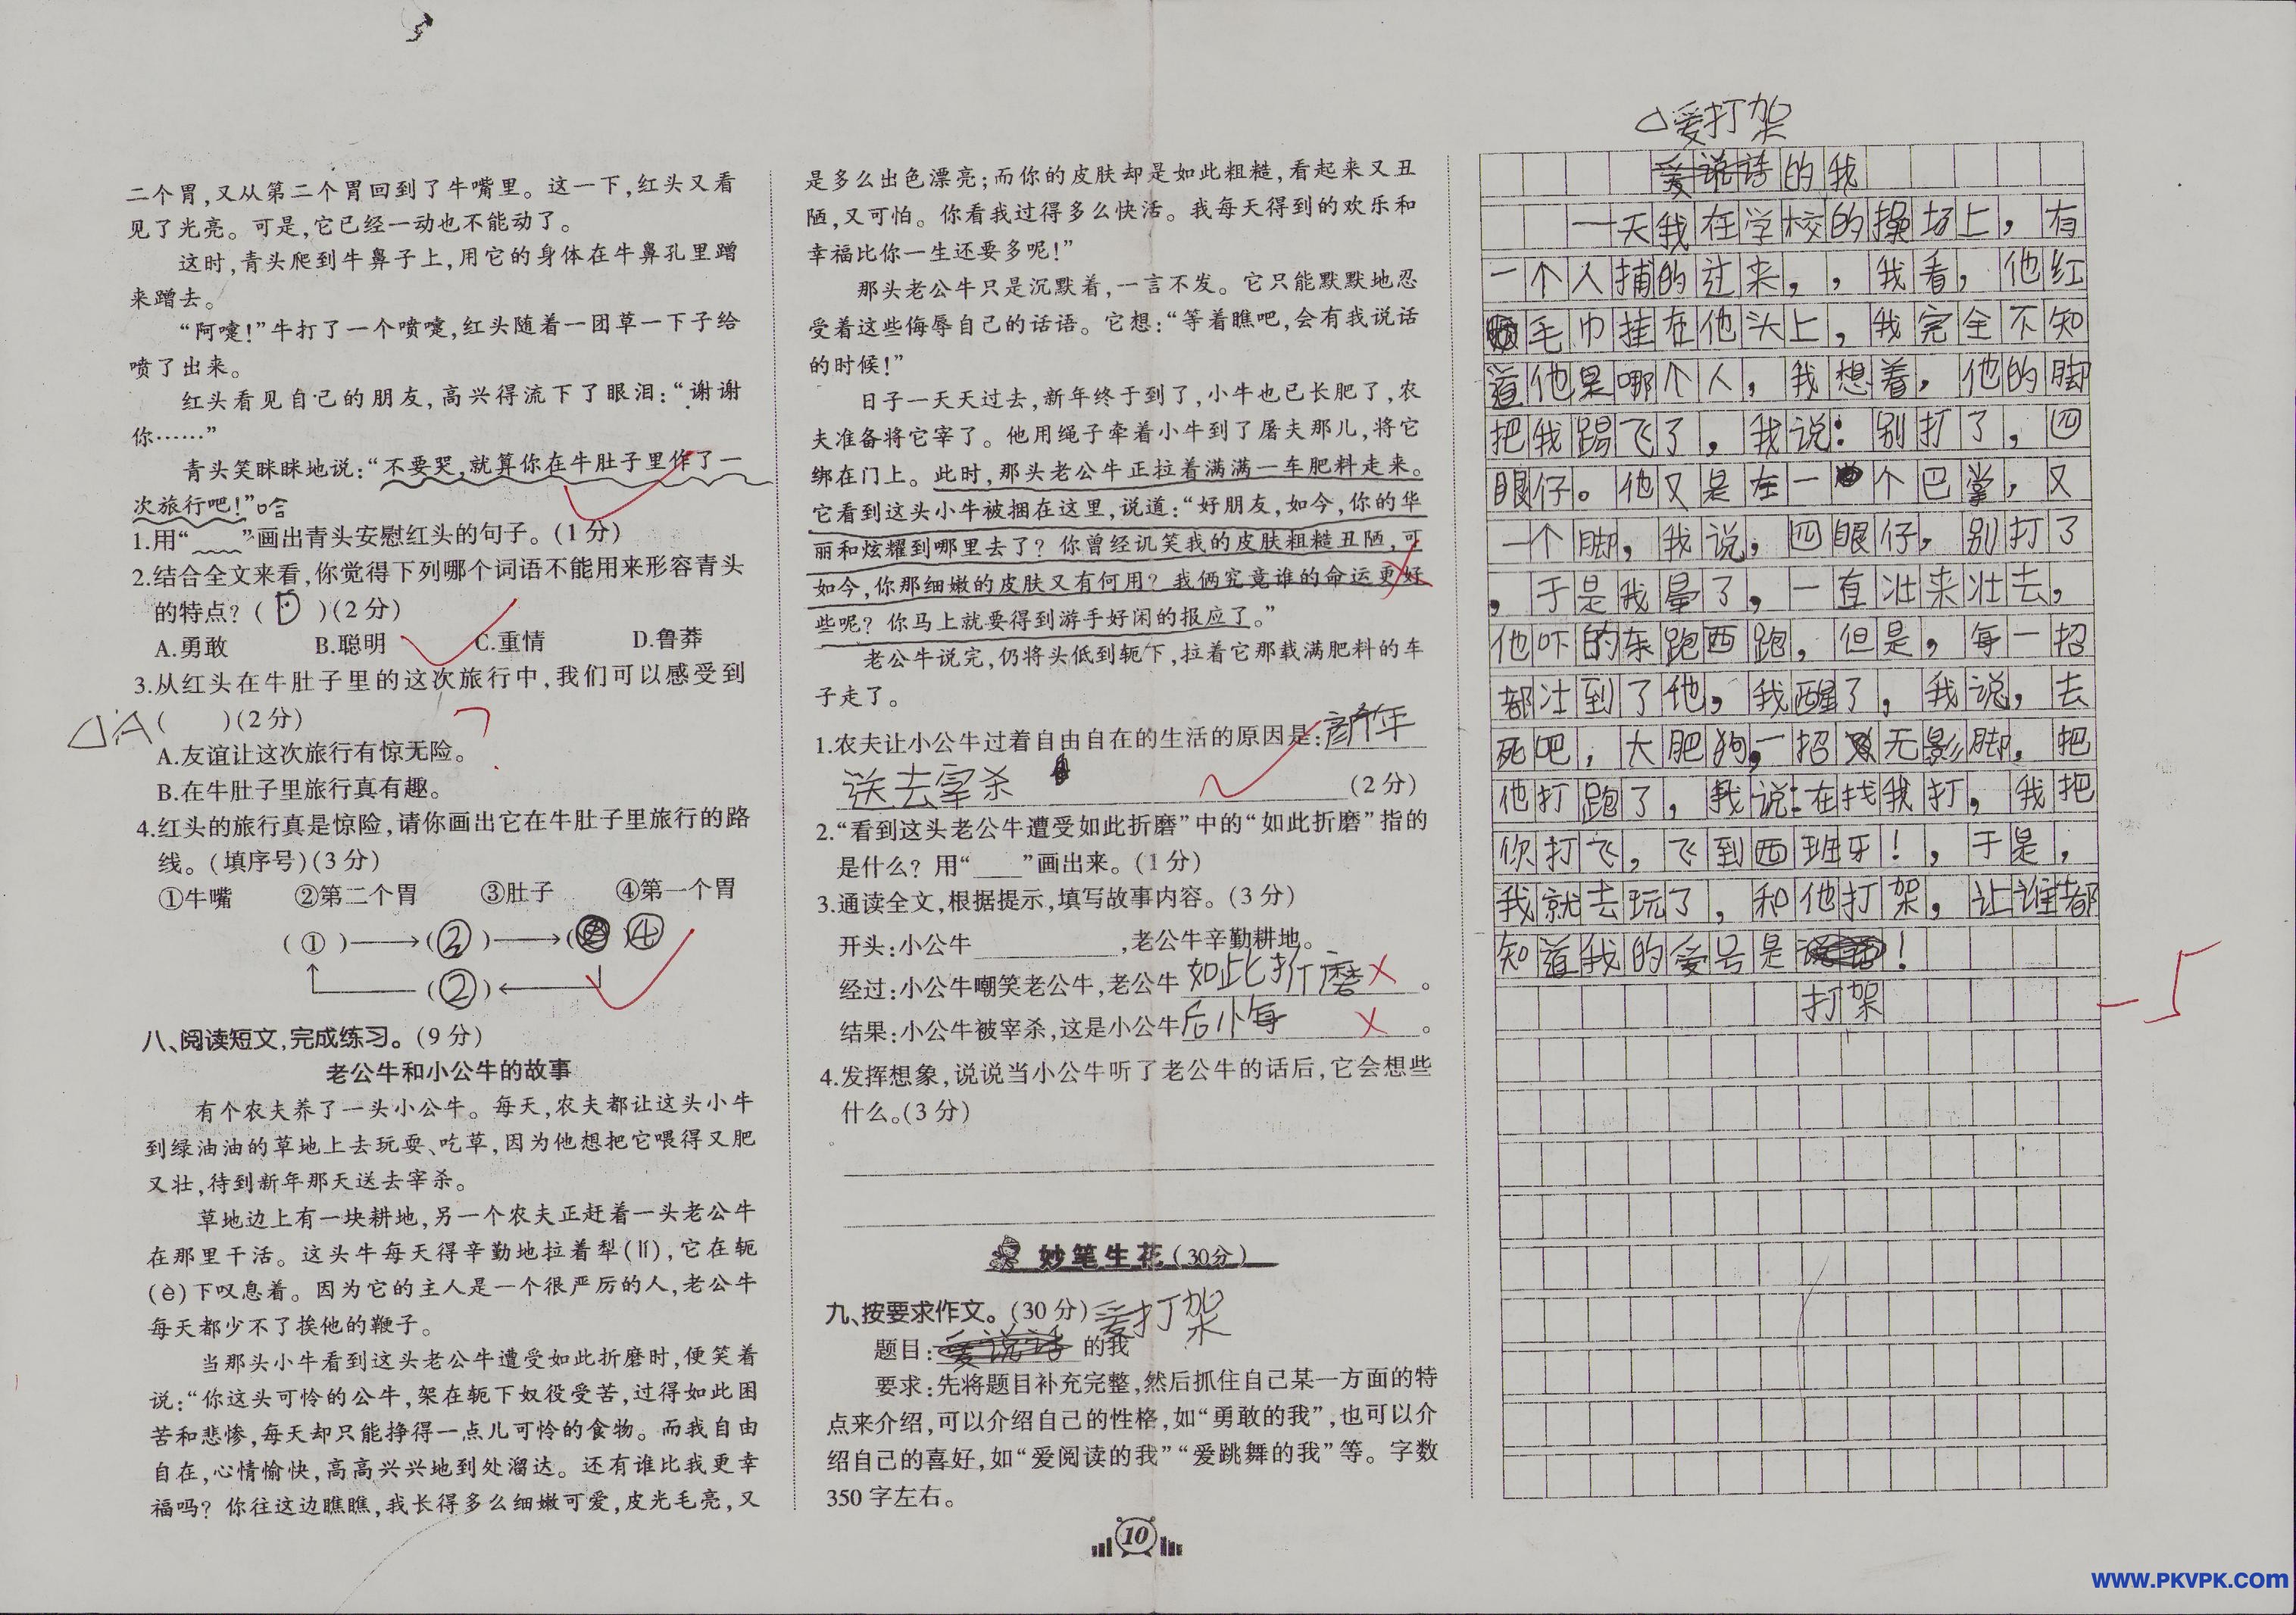 二个胃,又从第二个胃回到了牛嘴里。这一下,红头又看
见了光亮。可是,它已经一动也不能动了。
这时,青头爬到牛鼻子上,用它的身体在牛鼻孔里蹭
来蹭去。
“阿嚏!”牛打了一个喷嚏,红头随着一团草一下子给
喷了出来。
红头看见自己的朋友,高兴得流下了眼泪:“谢谢
你……”
青头笑眯眯地说:“不要哭,就算你在牛肚子里作了一
次旅行吧!”哈
1.用“﹏﹏”画出青头安慰红头的句子。(1分)
2.结合全文来看,你觉得下列哪个词语不能用来形容青头
的特点?( D )(2分)
A.勇敢 B.聪明 C.重情 D.鲁莽
3.从红头在牛肚子里的这次旅行中,我们可以感受到
A ( )(2分)
A.友谊让这次旅行有惊无险。
B.在牛肚子里旅行真有趣。
4.红头的旅行真是惊险,请你画出它在牛肚子里旅行的路
线。(填序号)(3分)
①牛嘴 ②第二个胃 ③肚子 ④第一个胃
( ① )→( ② )→( ) ④
( ② )←
八、阅读短文,完成练习。(9分)
老公牛和小公牛的故事
有个农夫养了一头小公牛。每天,农夫都让这头小牛
到绿油油的草地上去玩耍、吃草,因为他想把它喂得又肥
又壮,待到新年那天送去宰杀。
草地边上有一块耕地,另一个农夫正赶着一头老公牛
在那里干活。这头牛每天得辛勤地拉着犁(lí),它在轭
(è)下叹息着。因为它的主人是一个很严厉的人,老公牛
每天都少不了挨他的鞭子。
当那头小牛看到这头老公牛遭受如此折磨时,便笑着
说:“你这头可怜的公牛,架在轭下奴役受苦,过得如此困
苦和悲惨,每天却只能挣得一点儿可怜的食物。而我自由
自在,心情愉快,高高兴兴地到处溜达。还有谁比我更幸
福吗?你往这边瞧瞧,我长得多么细嫩可爱,皮光毛亮,又
是多么出色漂亮;而你的皮肤却是如此粗糙,看起来又丑
陋,又可怕。你看我过得多么快活。我每天得到的欢乐和
幸福比你一生还要多呢!”
那头老公牛只是沉默着,一言不发。它只能默默地忍
受着这些侮辱自己的话语。它想:“等着瞧吧,会有我说话
的时候!”
日子一天天过去,新年终于到了,小牛也已长肥了,农
夫准备将它宰了。他用绳子牵着小牛到了屠夫那儿,将它
绑在门上。此时,那头老公牛正拉着满满一车肥料走来。
它看到这头小牛被捆在这里,说道:“好朋友,如今,你的华
丽和炫耀到哪里去了?你曾经讥笑我的皮肤粗糙丑陋,可
如今,你那细嫩的皮肤又有何用?我俩究竟谁的命运更好
些呢?你马上就要得到游手好闲的报应了。”
老公牛说完,仍将头低到轭下,拉着它那载满肥料的车
子走了。
1.农夫让小公牛过着自由自在的生活的原因是:新年
送去宰杀 (2分)
2.“看到这头老公牛遭受如此折磨”中的“如此折磨”指的
是什么?用“____”画出来。(1分)
3.通读全文,根据提示,填写故事内容。(3分)
开头:小公牛____________,老公牛辛勤耕地。
经过:小公牛嘲笑老公牛,老公牛如此折磨。
结果:小公牛被宰杀,这是小公牛后悔。
4.发挥想象,说说当小公牛听了老公牛的话后,它会想些
什么。(3分)
妙笔生花(30分)
九、按要求作文。(30分) 爱打架
题目:爱说话的我
要求:先将题目补充完整,然后抓住自己某一方面的特
点来介绍,可以介绍自己的性格,如“勇敢的我”,也可以介
绍自己的喜好,如“爱阅读的我”“爱跳舞的我”等。字数
350字左右。
10
爱打架
爱说话的我
一天我在学校的操场上,有
一个人捕的过来,,我看,他红
毛巾挂在他头上,我完全不知
道他是哪个人,我想着,他的脚
把我踢飞了,我说:别打了,四
眼仔。他又是在一个巴掌,又
一个脚,我说,四眼仔,别打了
,于是我晕了,一直壮来壮去,
他吓的东跑西跑,但是,每一招
都壮到了他,我醒了,我说,去
死吧,大肥狗,一招无影脚,把
他打跑了,我说:在找我打,我把
你打飞,飞到西班牙!,于是,
我就去玩了,和他打架,让谁都
知道我的爱号是!
打架
-5
www.PKVPK.com